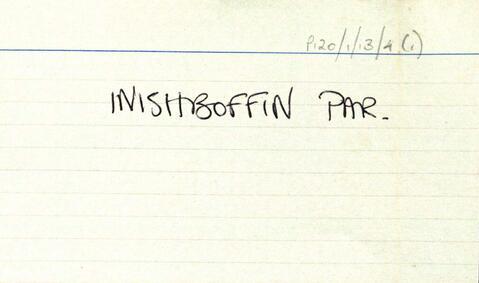 P120/1/13/4 (1)
INISHBOFFIN PAR.